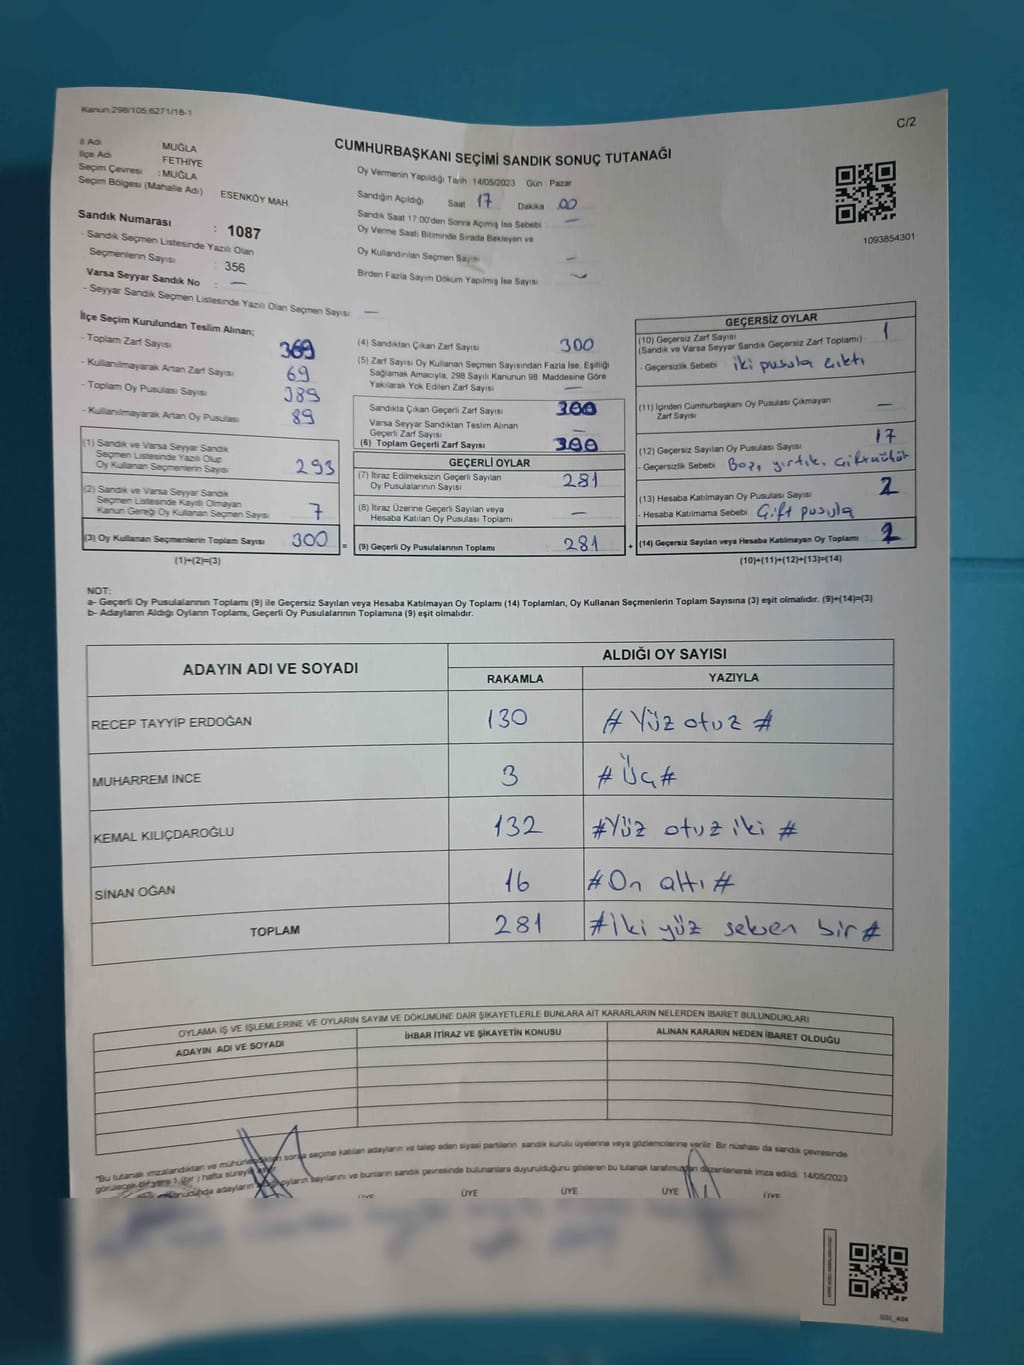 Kanun:298/105,6271/18-1
C/2
CUMHURBAŞKANI SEÇİMİ SANDIK SONUÇ TUTANAĞI
İl Adı MUĞLA
İlçe Adı FETHİYE
Seçim Çevresi : MUĞLA
Seçim Bölgesi (Mahalle Adı) ESENKÖY MAH
Sandık Numarası : 1087
- Sandık Seçmen Listesinde Yazılı Olan
Seçmenlerin Sayısı : 356
Varsa Seyyar Sandık No : —
- Seyyar Sandık Seçmen Listesinde Yazılı Olan Seçmen Sayısı —
Oy Vermenin Yapıldığı Tarih 14/05/2023 Gün Pazar
Sandığın Açıldığı Saat 17 Dakika 00
Sandık Saat 17:00'den Sonra Açımış İse Sebebi —
Oy Verme Saati Bitiminde Sırada Bekleyen ve
Oy Kullandırılan Seçmen Sayısı —
Birden Fazla Sayım Döküm Yapılmış İse Sayısı —
1093854301
İlçe Seçim Kurulundan Teslim Alınan;
- Toplam Zarf Sayısı 369
- Kullanılmayarak Artan Zarf Sayısı 69
- Toplam Oy Pusulası Sayısı 389
- Kullanılmayarak Artan Oy Pusulası 89
(1) Sandık ve Varsa Seyyar Sandık
Seçmen Listesinde Yazılı Olup
Oy Kullanan Seçmenlerin Sayısı 293
(2) Sandık ve Varsa Seyyar Sandık
Seçmen Listesinde Kayıtlı Olmayan
Kanun Gereği Oy Kullanan Seçmen Sayısı 7
(3) Oy Kullanan Seçmenlerin Toplam Sayısı 300 =
(1)+(2)=(3)
(4) Sandıktan Çıkan Zarf Sayısı 300
(5) Zarf Sayısı Oy Kullanan Seçmen Sayısından Fazla İse, Eşitliği
Sağlamak Amacıyla, 298 Sayılı Kanunun 98. Maddesine Göre
Yakılarak Yok Edilen Zarf Sayısı —
Sandıkta Çıkan Geçerli Zarf Sayısı 300
Varsa Seyyar Sandıktan Teslim Alınan
Geçerli Zarf Sayısı —
(6) Toplam Geçerli Zarf Sayısı 300
GEÇERLİ OYLAR
(7) İtiraz Edilmeksizin Geçerli Sayılan
Oy Pusulalarının Sayısı 281
(8) İtiraz Üzerine Geçerli Sayılan veya
Hesaba Katılan Oy Pusulası Toplamı —
(9) Geçerli Oy Pusulalarının Toplamı 281 +
GEÇERSİZ OYLAR
(10) Geçersiz Zarf Sayısı 1
(Sandık ve Varsa Seyyar Sandık Geçersiz Zarf Toplamı)
- Geçersizlik Sebebi iki pusula çıktı
(11) İçinden Cumhurbaşkanı Oy Pusulası Çıkmayan
Zarf Sayısı —
(12) Geçersiz Sayılan Oy Pusulası Sayısı 17
- Geçersizlik Sebebi yırtık,
(13) Hesaba Katılmayan Oy Pusulası Sayısı 2
- Hesaba Katılmama Sebebi Çift pusula
(14) Geçersiz Sayılan veya Hesaba Katılmayan Oy Toplamı 2
(10)+(11)+(12)+(13)=(14)
NOT:
a- Geçerli Oy Pusulalarının Toplamı (9) ile Geçersiz Sayılan veya Hesaba Katılmayan Oy Toplamı (14) Toplamları, Oy Kullanan Seçmenlerin Toplam Sayısına (3) eşit olmalıdır. (9)+(14)=(3)
b- Adayların Aldığı Oyların Toplamı, Geçerli Oy Pusulalarının Toplamına (9) eşit olmalıdır.
ADAYIN ADI VE SOYADI
ALDIĞI OY SAYISI
RAKAMLA YAZIYLA
RECEP TAYYİP ERDOĞAN 130 # Yüz otuz #
MUHARREM İNCE 3 # Üç #
KEMAL KILIÇDAROĞLU 132 # Yüz otuz iki #
SİNAN OĞAN 16 # On altı #
TOPLAM 281 # İki yüz seksen bir #
OYLAMA İŞ VE İŞLEMLERİNE VE OYLARIN SAYIM VE DÖKÜMÜNE DAİR ŞİKAYETLERLE BUNLARA AİT KARARLARIN NELERDEN İBARET BULUNDUKLARI
ADAYIN ADI VE SOYADI İHBAR İTİRAZ VE ŞİKAYETİN KONUSU ALINAN KARARIN NEDEN İBARET OLDUĞU
"Bu tutanak imzalandıktan ve mühürlendikten sonra seçime katılan adayların ve talep eden siyasi partilerin sandık kurulu üyelerine veya gözlemcilerine verilir. Bir nüshası da sandık çevresinde
görülecek bir yere 1 (bir ) hafta süreyle asılır.
sonucunda adayların aldığı oyların sayılarını ve bunların sandık çevresinde bulunanlara duyurulduğunu gösteren bu tutanak tarafımızdan düzenlenerek imza edildi. 14/05/2023
ÜYE ÜYE ÜYE ÜYE ÜYE